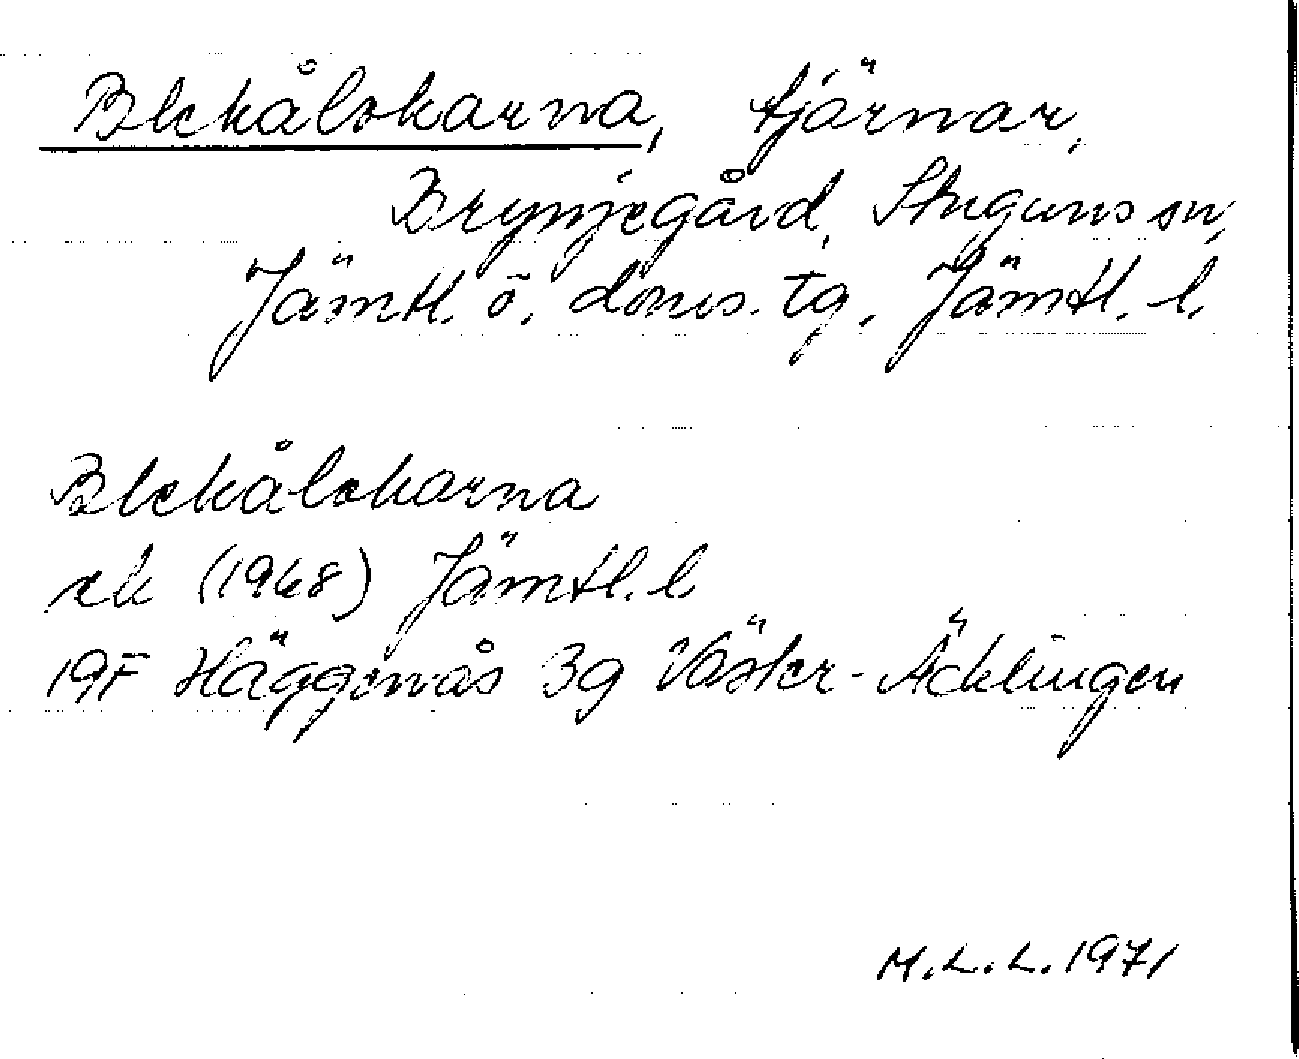 Blekålokarna, tjärnar,
Brynjegård, Stuguns sn,
Jämtl. ö. doms. tg, Jämtl. l.
Blekålokarna
ek (1968) Jämtl. l
19F Häggenås 3g Väster-Äcklingen
M.L.L. 1971